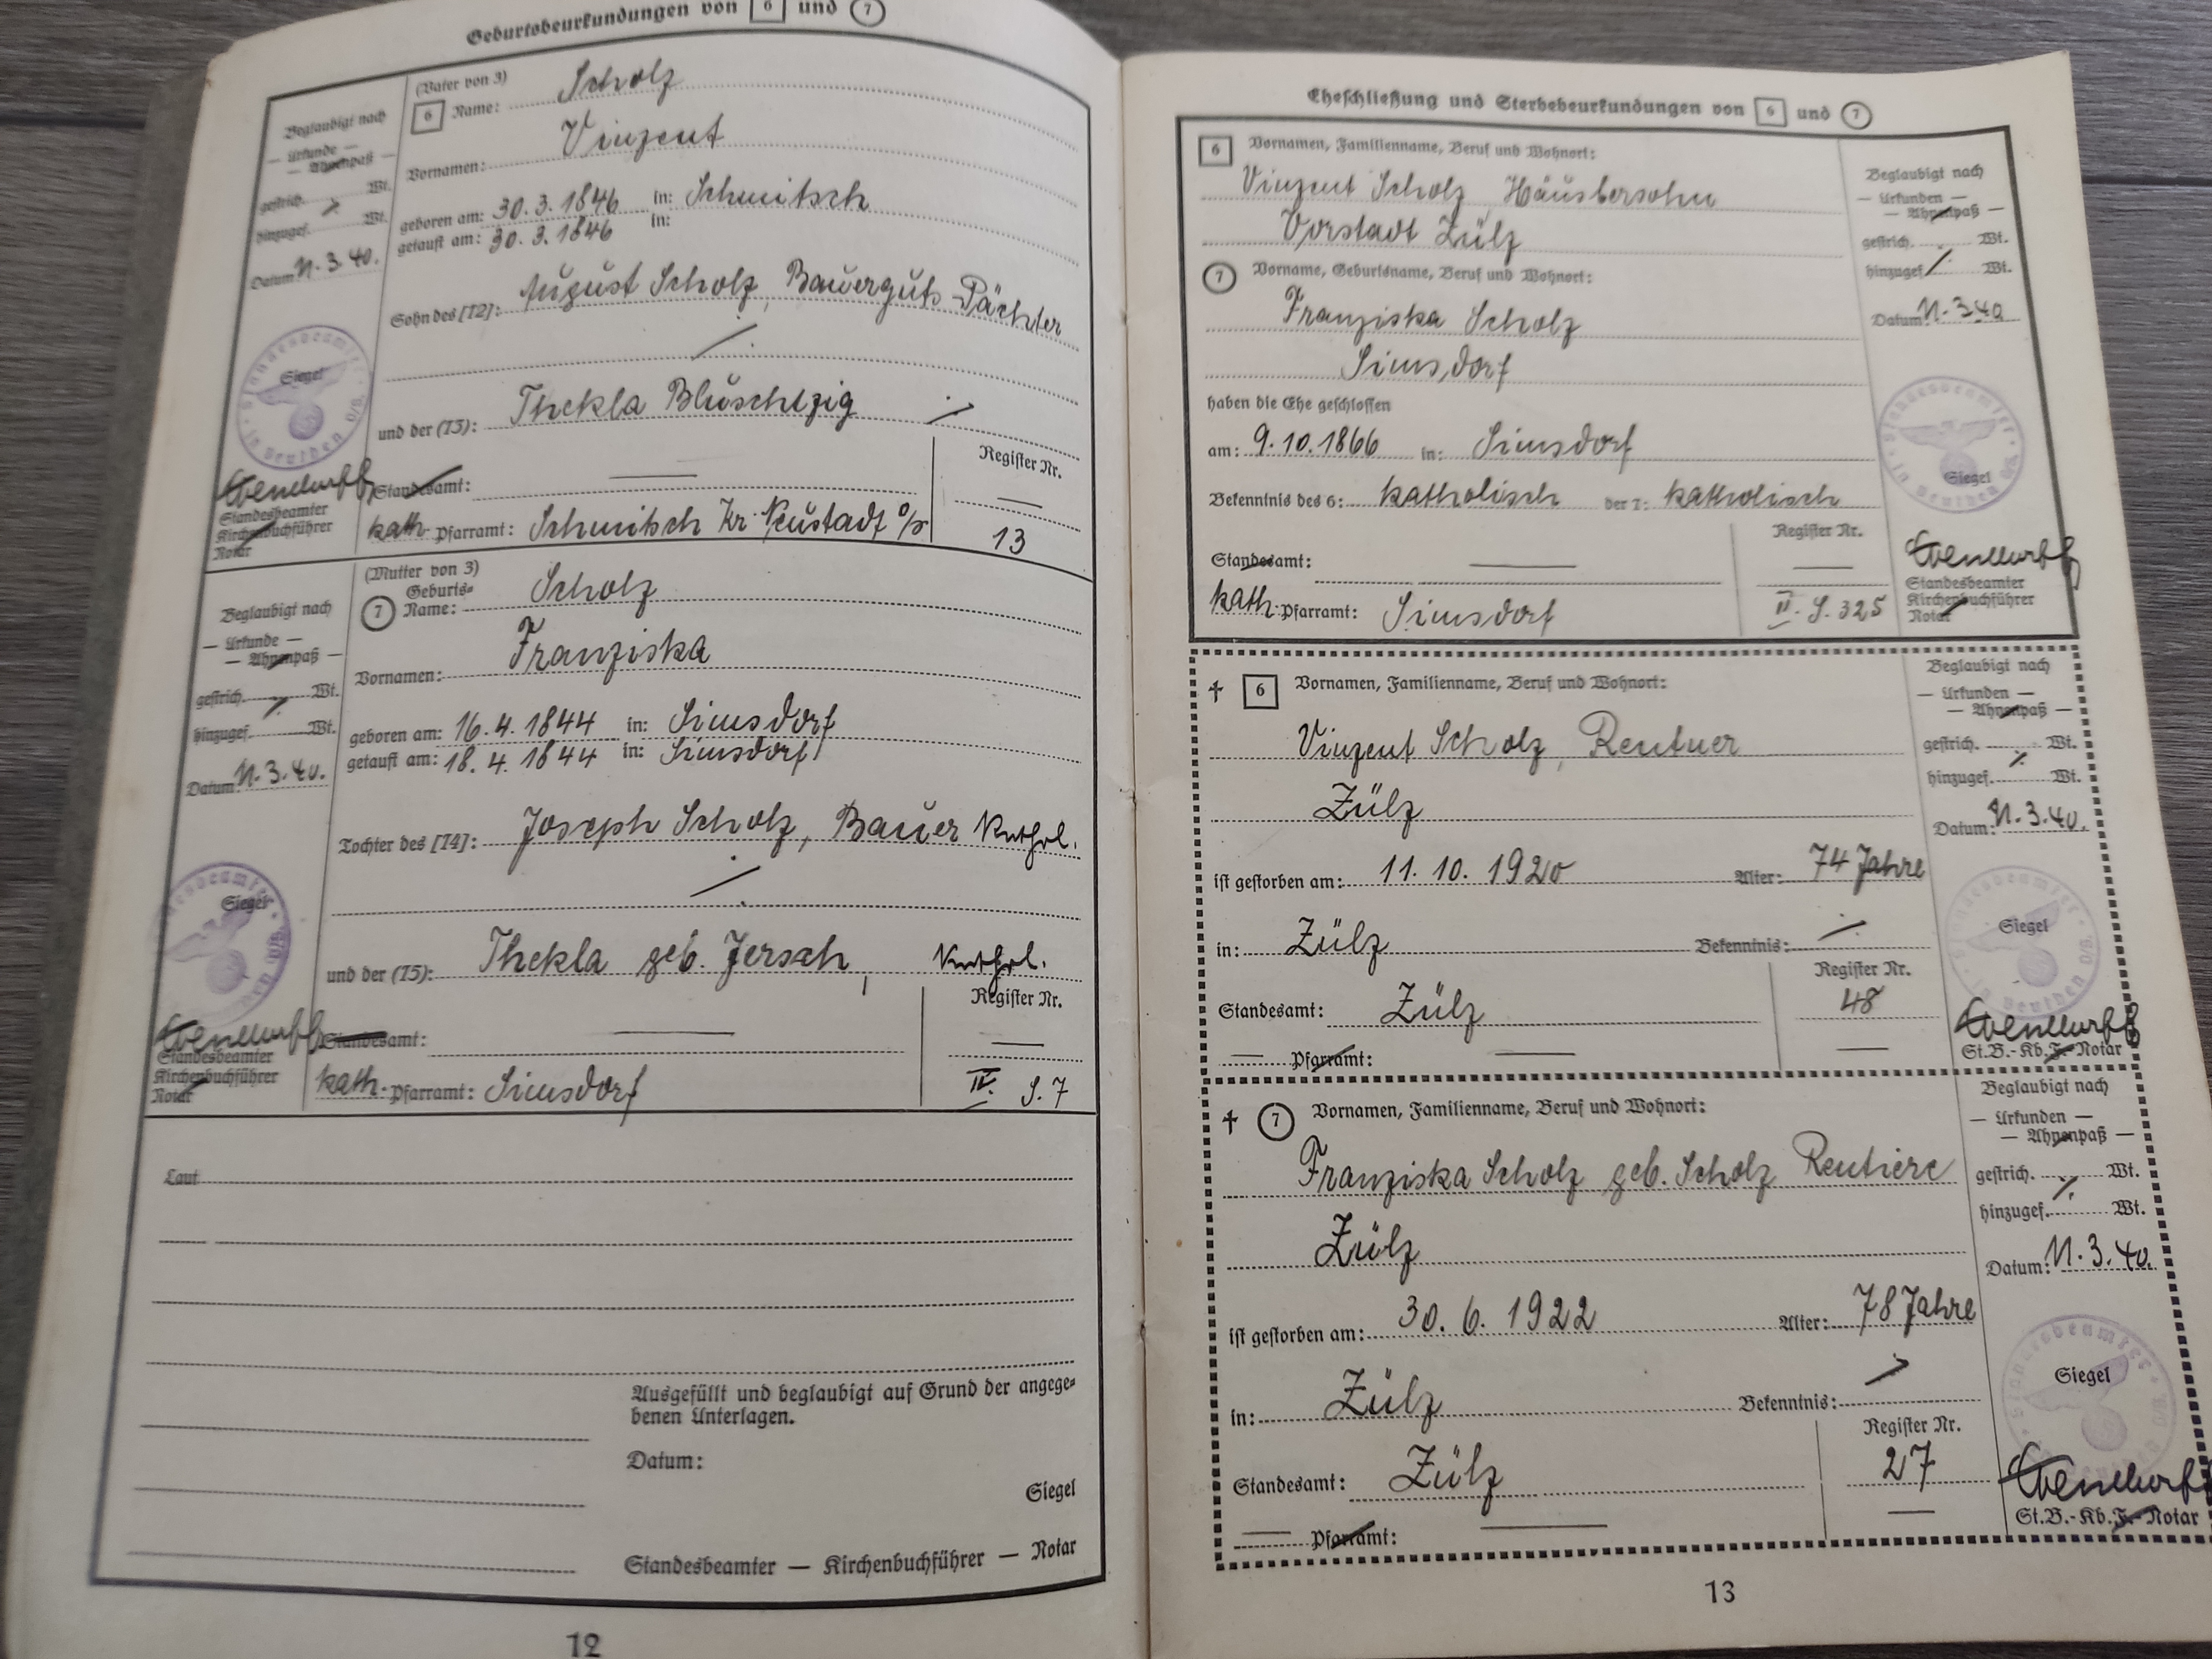 Geburtsbeurkundungen von 6 und 7
(Vater von 3)
6 Name: Scholz
Vornamen: Vinzent
geboren am: 30.3.1846 in: Schmitsch
getauft am: 30.3.1846 in:
Sohn des [12]: August Scholz, Bauerguts-Pächter
und der (13): Thekla Bluschtzig
Register Nr.
Standesamt:
kath. Pfarramt: Schmitsch Kr. Neustadt O/S 13
Beglaubigt nach
— Urkunde —
— Ahnenpaß —
gestrich. Wt.
hinzugef. Wt.
Datum 11.3.40.
Siegel
Standesbeamter
Kirchenbuchführer
Notar
(Mutter von 3)
Geburts-
7 Name: Scholz
Vornamen: Franziska
geboren am: 16.4.1844 in: Simsdorf
getauft am: 18.4.1844 in: Simsdorf
Tochter des [14]: Joseph Scholz, Bauer kathol.
und der (15): Thekla geb. Jersch, kathol.
Register Nr.
Standesamt:
kath. Pfarramt: Simsdorf IV. S. 7
Beglaubigt nach
— Urkunde —
— Ahnenpaß —
gestrich. Wt.
hinzugef. Wt.
Datum 11.3.40.
Siegel
Standesbeamter
Kirchenbuchführer
Notar
Laut
Ausgefüllt und beglaubigt auf Grund der angege-
benen Unterlagen.
Datum:
Siegel
Standesbeamter — Kirchenbuchführer — Notar
12
Eheschließung und Sterbebeurkundungen von 6 und 7
6 Vornamen, Familienname, Beruf und Wohnort:
Vinzent Scholz, Häuslersohn
Vorstadt Zülz
7 Vorname, Geburtsname, Beruf und Wohnort:
Franziska Scholz
Simsdorf
haben die Ehe geschlossen
am: 9.10.1866 in: Simsdorf
Bekenntnis des 6: katholisch der 7: katholisch
Register Nr.
Standesamt:
kath. Pfarramt: Simsdorf II. S. 325
Beglaubigt nach
— Urkunden —
— Ahnenpaß —
gestrich. Wt.
hinzugef. Wt.
Datum 11.3.40
Siegel
Standesbeamter
Kirchenbuchführer
Notar
† 6 Vornamen, Familienname, Beruf und Wohnort:
Vinzent Scholz, Rentner
Zülz
ist gestorben am: 11.10.1920 Alter: 74 Jahre
in: Zülz Bekenntnis:
Register Nr.
Standesamt: Zülz 48
Pfarramt:
Beglaubigt nach
— Urkunden —
— Ahnenpaß —
gestrich. Wt.
hinzugef. Wt.
Datum: 11.3.40.
Siegel
St.B.-Kb.F.-Notar
† 7 Vornamen, Familienname, Beruf und Wohnort:
Franziska Scholz geb. Scholz Rentiere
Zülz
ist gestorben am: 30.6.1922 Alter: 78 Jahre
in: Zülz Bekenntnis:
Register Nr.
Standesamt: Zülz 27
Pfarramt:
Beglaubigt nach
— Urkunden —
— Ahnenpaß —
gestrich. Wt.
hinzugef. Wt.
Datum: 11.3.40.
Siegel
St.B.-Kb.F.-Notar
13